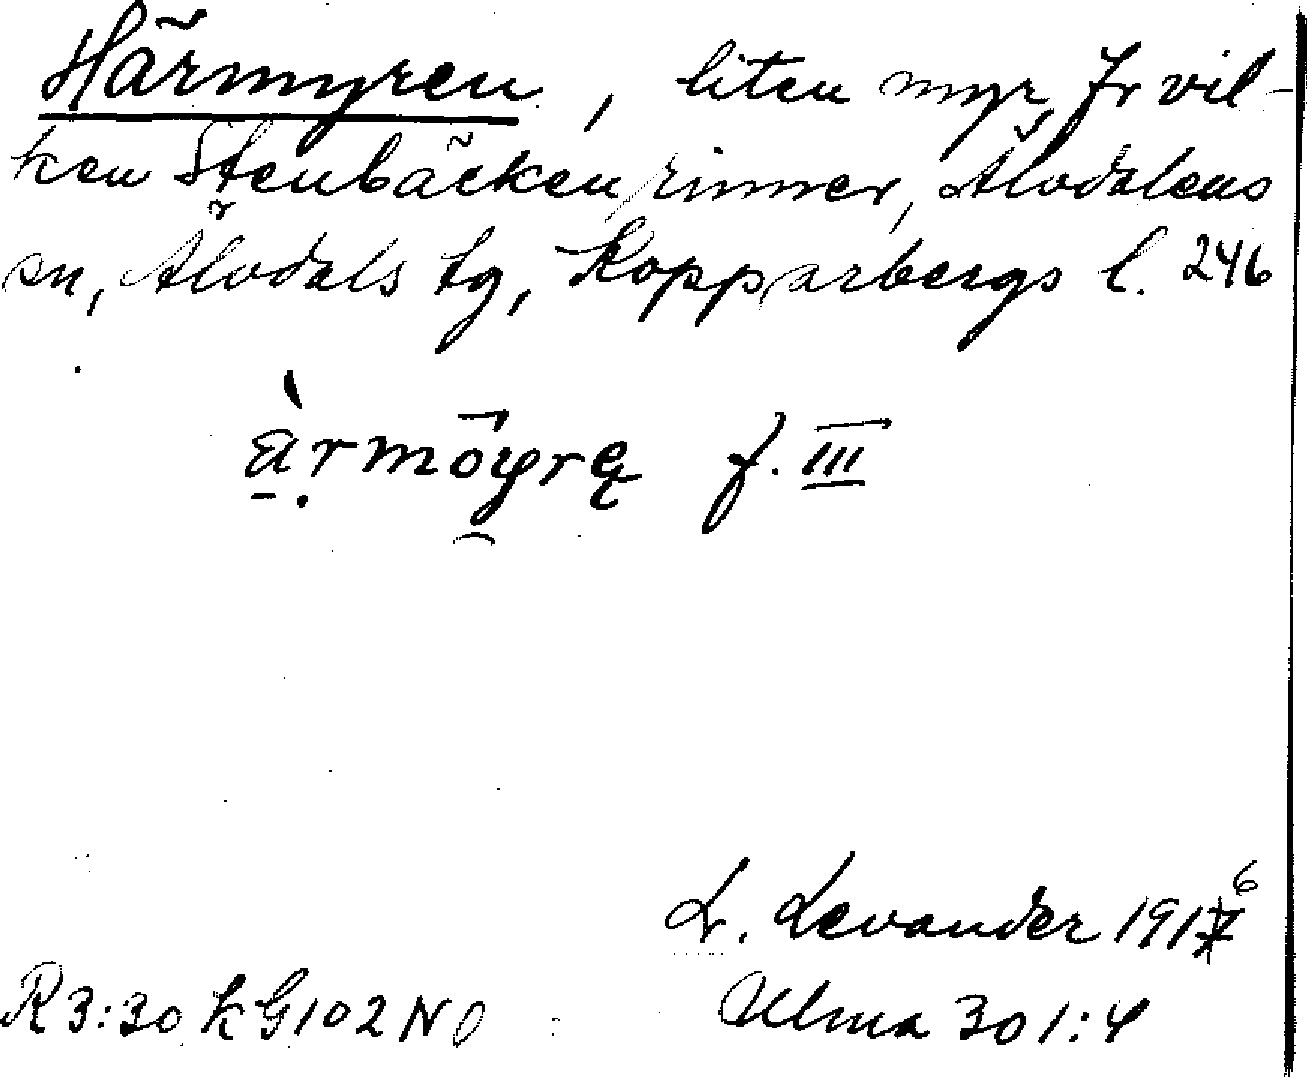 Härmyren, liten myr, fr vil-
ken Stenbäcken rinner, Älvdalens
sn, Älvdals tg, Kopparbergs l. 246
f. III
L. Levander 1916
R3:30 k G102 NO
Ulma 301:4